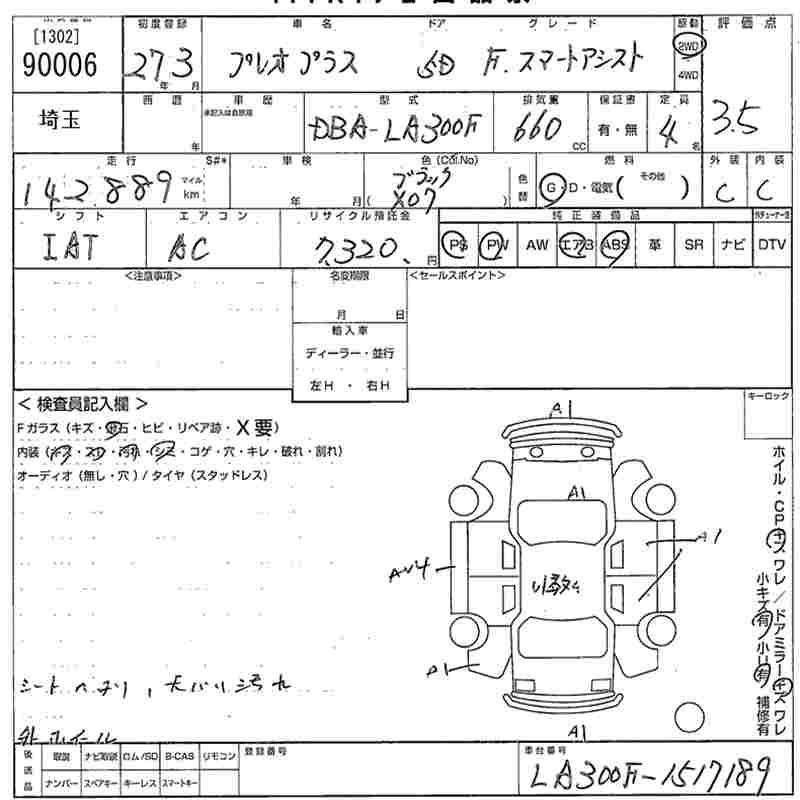 [1302]
90006
初度登録
27 3
年 月
車名
プレオプラス
ドア
5D
グレード
F. スマートアシスト
駆動
2WD
4WD
評価点
3.5
埼玉
西暦
年
車歴
型式
DBA-LA300F
排気量
660
CC
保証書
有・無
定員
4
名
走行
142889
マイル
km
S#*
車検
年 月
色(Col.No)
ブラック
( X07 )
色替
燃料
G・D・電気( その他 )
外装
C
内装
C
シフト
IAT
エアコン
AC
リサイクル預託金
7,320.
円
純正装備品
PS PW AW エアB ABS 革 SR ナビ DTV
<注意事項>
名変期限
月 日
輸入車
ディーラー・並行
左H ・ 右H
<セールスポイント>
<検査員記入欄>
Fガラス(キズ・飛石・ヒビ・リペア跡・X要)
内装(キズ・スレ・汚れ・シミ・コゲ・穴・キレ・破れ・割れ)
オーディオ(無し・穴)/タイヤ(スタッドレス)
キーロック
A1
A1
A1
A1
A1
ホイル・CPキズワレ/ドアミラーキズワレ
小キズ有/小凹有 補修有
後送品
取説 ナビ取説 ロム/SD B-CAS リモコン
ナンバー スペアキー キーレス スマートキー
登録番号
車台番号
LA300F-1517189